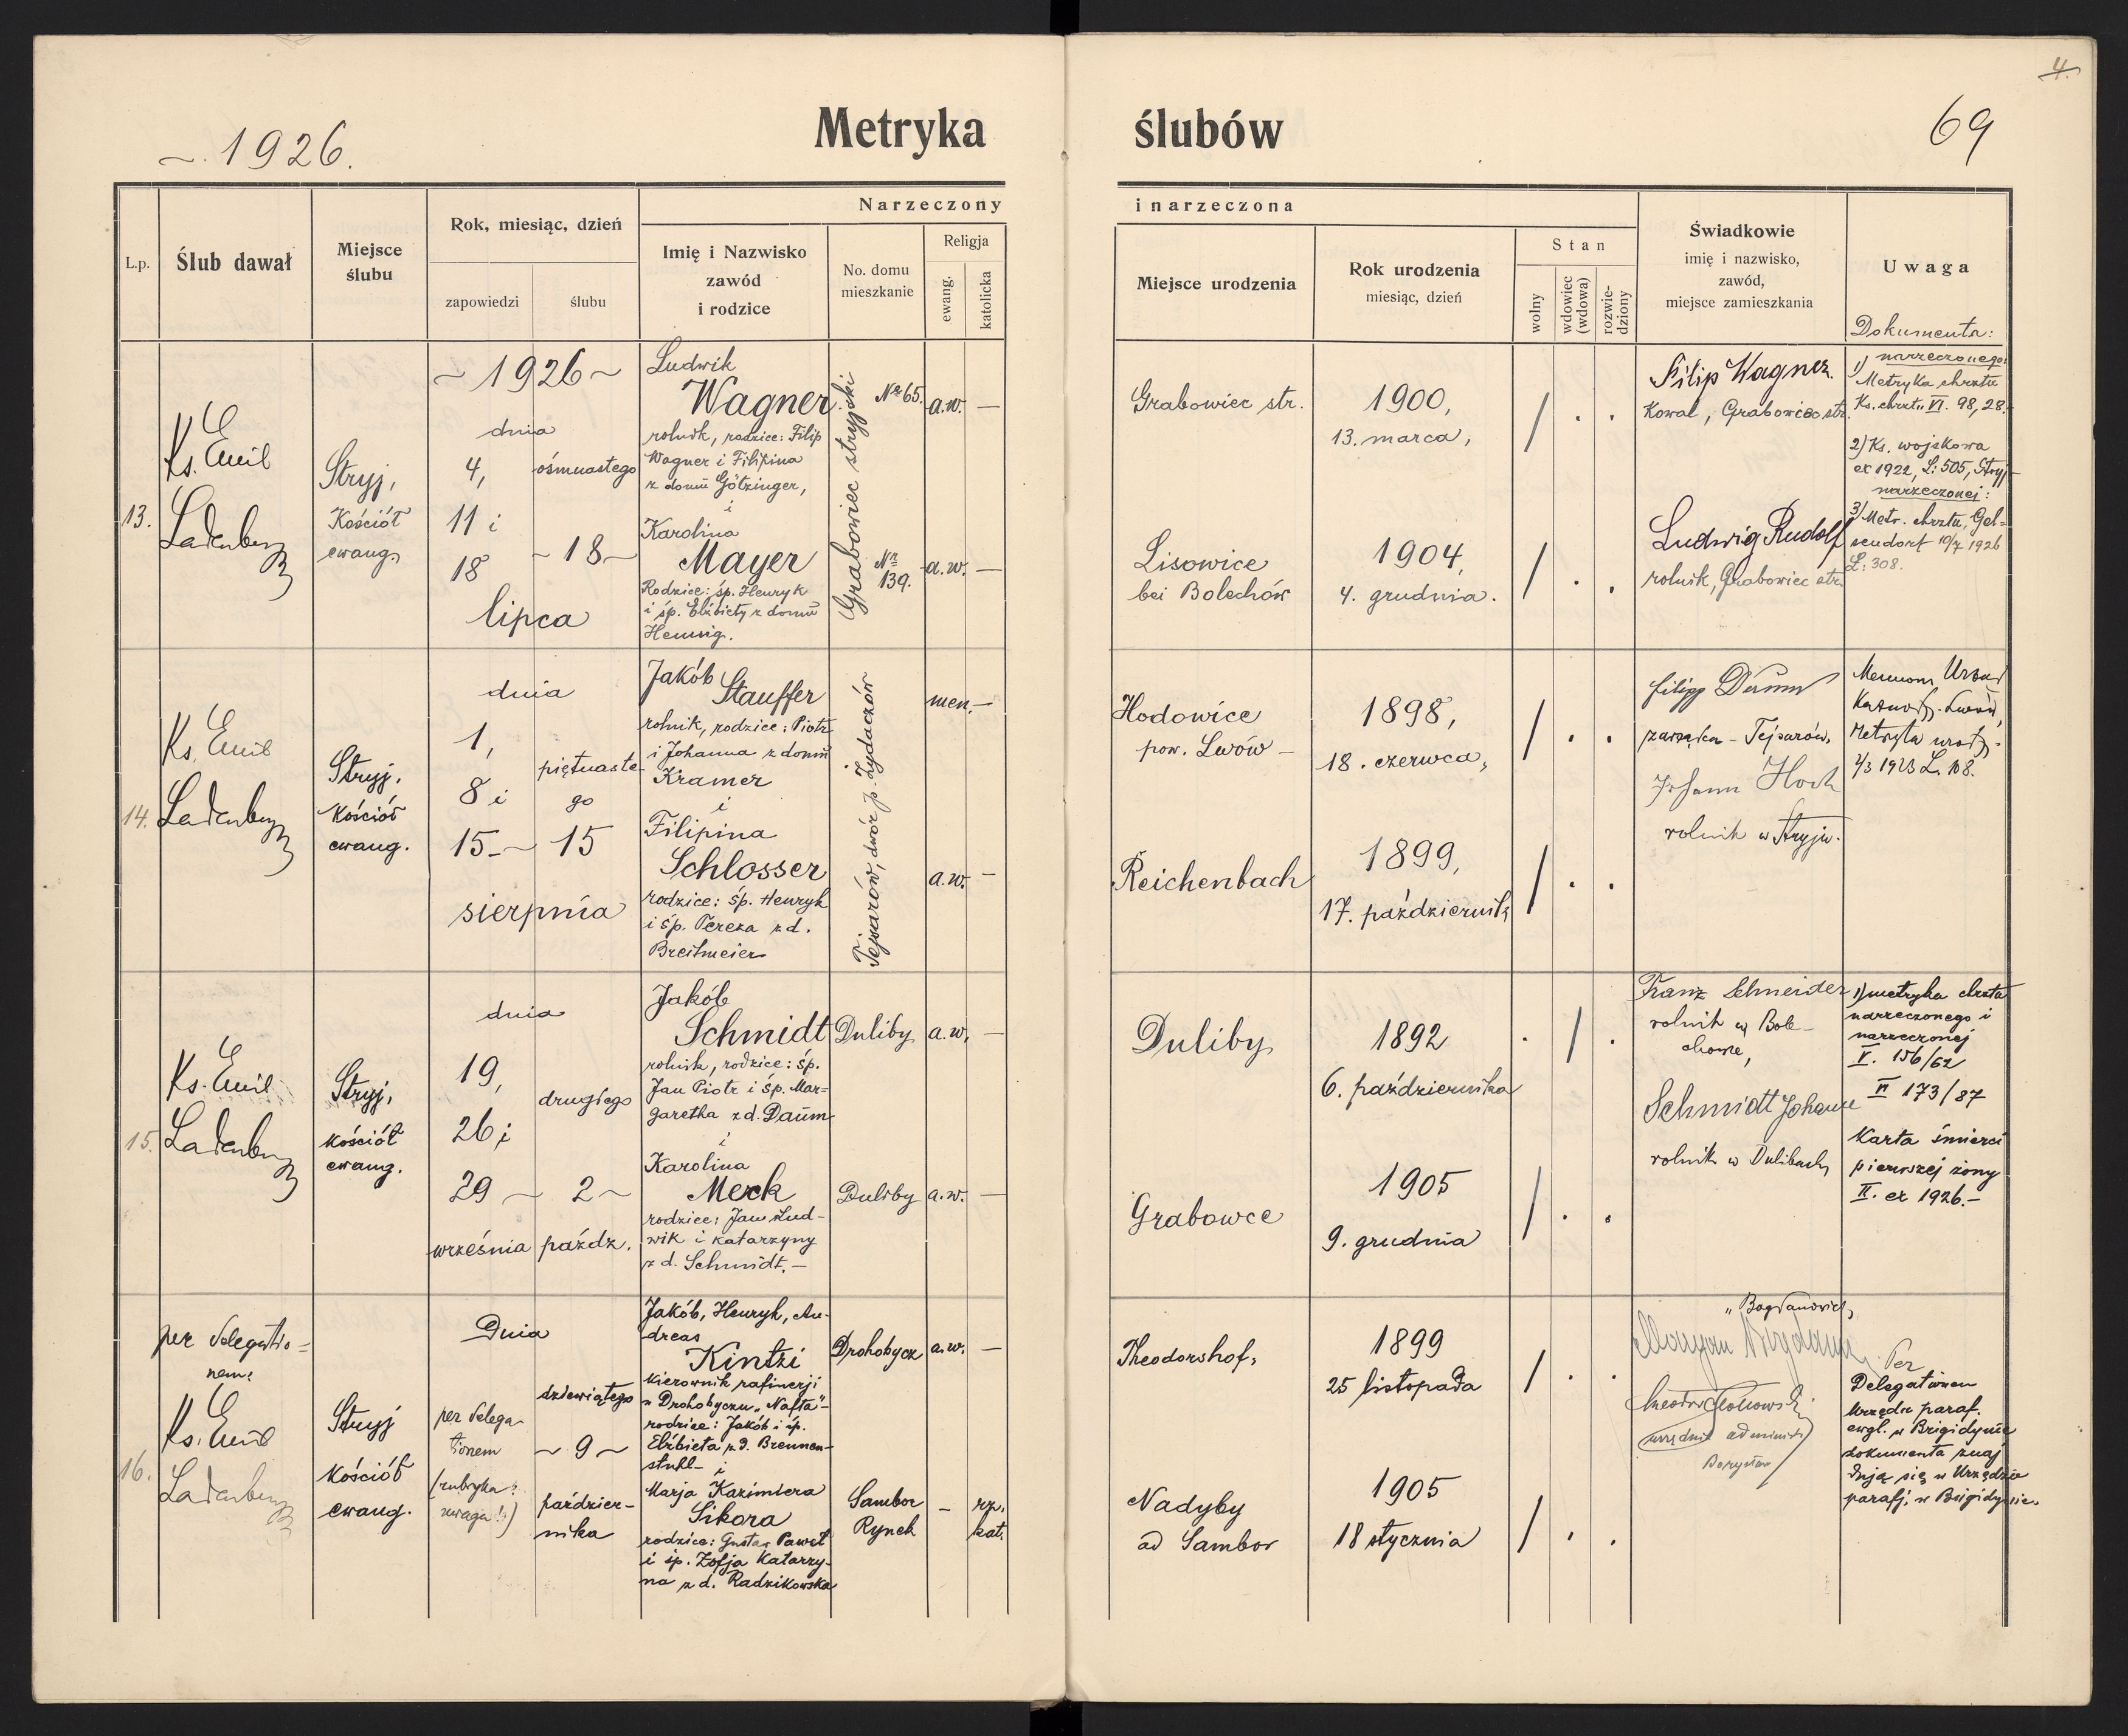 4.
69
~. 1926.
Metryka ślubów
Narzeczony i narzeczona
L.p.
Ślub dawał
Miejsce
ślubu
Rok, miesiąc, dzień
zapowiedzi
ślubu
Imię i Nazwisko
zawód
i rodzice
No. domu
mieszkanie
Religja
ewang.
katolicka
Miejsce urodzenia
Rok urodzenia
miesiąc, dzień
Stan
wolny
wdowiec
(wdowa)
rozwie-
dziony
Świadkowie
imię i nazwisko,
zawód,
miejsce zamieszkania
Uwaga
Dokumenta:
13.
Ks. Emil
Ladenberg
Stryj,
Kościół
ewang.
~ 1926 ~
dnia
4,
11 i
18
lipca
ósmnastego
~ 18 ~
Ludwik
Wagner
rolnik, rodzice: Filip
Wagner i Filipina
z domu Götzinger,
i
Karolina
Mayer
Rodzice: śp. Henryk
i śp. Elżbiety z domu
Hennig.
Grabowiec stryjski
Nr 65.
Nr
139.
a.w. —
a.w. —
Grabowiec str.
1900,
13. marca,
/ . .
Lisowice
bei Bolechów
1904,
4. grudnia.
/ . .
Filip Wagner.
Kowal, Grabowiec str.
Ludwig Rudolf
rolnik, Grabowiec str.
1) narzeczonego:
Metryka chrztu
Ks. chrzt. VI. 98, 28.
2) Ks. wojskowa
ex 1922, L: 505, Stryj
narzeczonej:
3) Metr. chrztu, Gel-
sendorf 10/7 1926
L: 308.
14.
Ks. Emil
Ladenberg
Stryj.
Kościół
ewang.
dnia
1,
8 i
15 ~
sierpnia
piętnaste-
go
15
Jakób
Stauffer
rolnik, rodzice: Piotr
i Johanna z domu
Kramer
i
Filipina
Schlosser
rodzice: śp. Henryk
i śp. Tereza z d.
Breitmeier
Tejsarów, dwór p. Żydaczów
men. —
a.w. —
Hodowice
pow. Lwów —
1898,
18. czerwca,
/ . .
Reichenbach
1899,
17. października
/ . .
Filipp Daum
zarządca - Tejsarów,
Johann Hoch
rolnik w Stryju.
Mennon. Urząd
Kaznodz. Lwów,
Metryka urodz.
2/3 1923 L. 108.
15.
Ks. Emil
Ladenberg
Stryj,
kościół
ewang.
dnia
19,
26 i
29 ~
września
drugiego
2 ~
paźdz.
Jakób
Schmidt
rolnik, rodzice: śp.
Jan Piotr i śp. Mar-
garetha z d. Daum
i
Karolina
Merk
rodzice: Jan Lud-
wik i Katarzyny
z d. Schmidt. —
Duliby
Duliby
a.w. —
a.w. —
Duliby
1892
6. października
. / .
Grabowce
1905
9. grudnia
/ . .
Franz Schneider
rolnik w Bole-
chowie,
Schmidt Johann
rolnik w Dulibach
1) metryka chrztu
narzeczonego i
narzeczonej
V. 156/62
VI 173/87
Karta śmierci
pierwszej żony
II. ex 1926. —
16.
per delegatio-
nem:
Ks. Emil
Ladenberg
Stryj
kościół
ewang.
Dnia
per delega-
tionem
(rubryka:
uwaga!!)
dziewiątego
~ 9 ~
paździer-
nika
Jakób, Henryk, An-
dreas
Kintzi
kierownik rafinerji
w Drohobyczu „Nafta"
rodzice: Jakób i śp.
Elżbieta z d. Brennen-
stuhl —
i
Marja Kazimiera
Sikora
rodzice: Gustaw Paweł
i śp. Zofja Katarzy-
na z d. Radzikowska
Drohobycz
Sambor
Rynek
a.w. —
- rz.
kat.
Theodorshof,
1899
25 listopada
/ . .
Nadyby
ad Sambor
1905
18 stycznia
/ . .
„Bogdanowicz
urzędnik
Borysław
Per
Delegationem
Urzędu paraf.
ewgl. w Brigidynie
dokumenta znaj
dują się w Urzędzie
parafj. w Brigidynie.